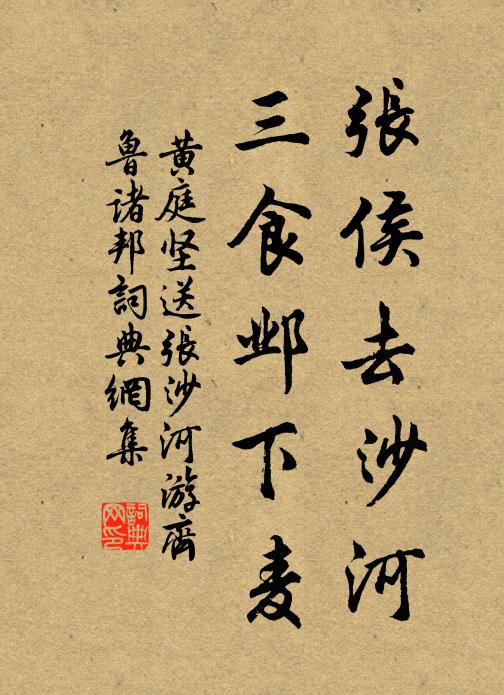 張侯去沙河
三食邺下麦
黄庭坚送張沙河游齊
魯诸邦詞典網集
詞典
网印